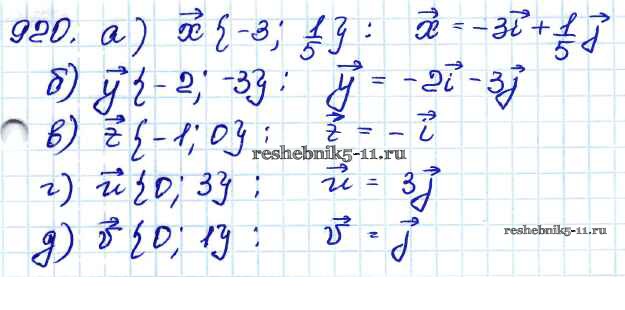 920. а) x⃗ {-3; 1/5}: x⃗ = -3i⃗ + 1/5 j⃗
б) y⃗ {-2; -3}: y⃗ = -2i⃗ - 3j⃗
в) z⃗ {-1; 0}: z⃗ = -i⃗
reshebnik5-11.ru
г) u⃗ {0; 3}: u⃗ = 3j⃗
д) v⃗ {0; 1}: v⃗ = j⃗
reshebnik5-11.ru